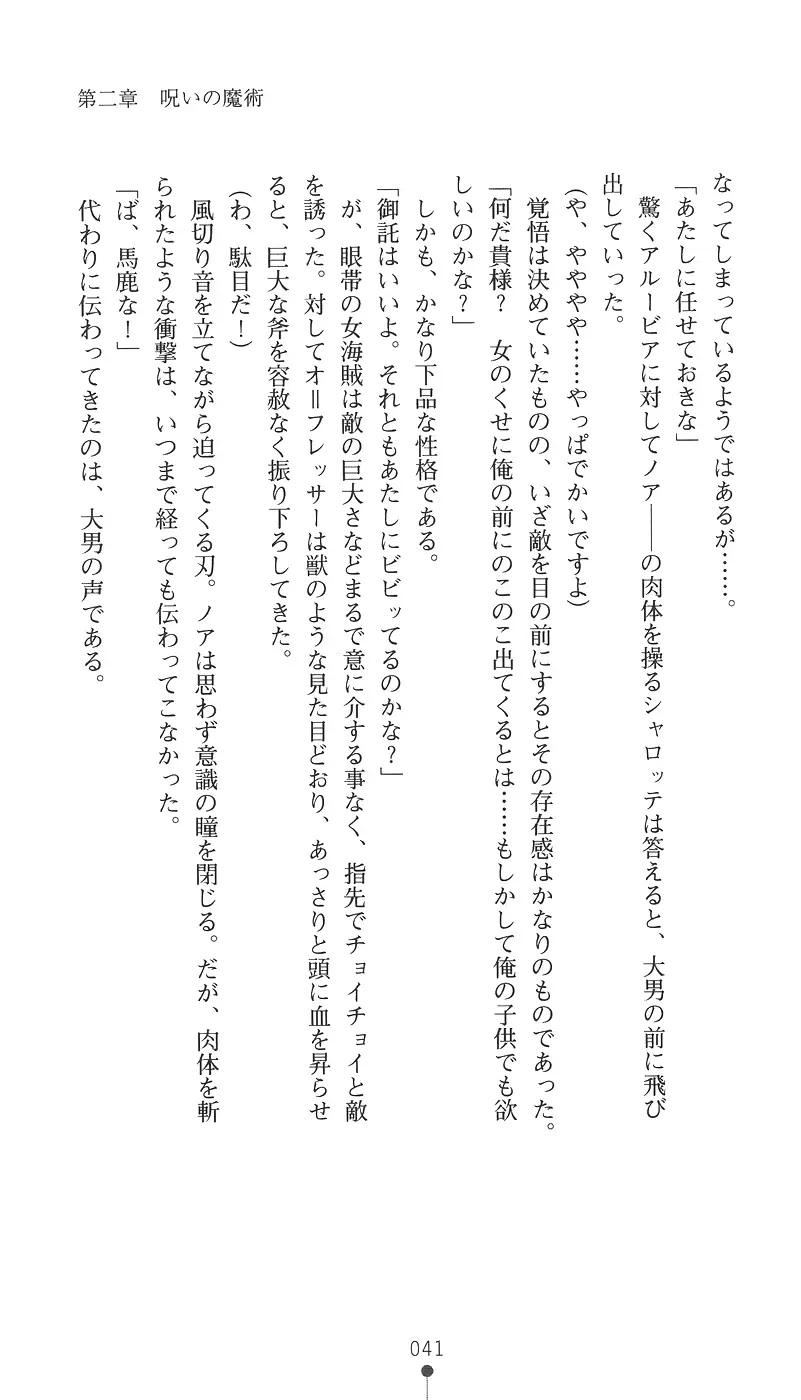 第二章　呪いの魔術
なってしまっているようではあるが……。
「あたしに任せておきな」
驚くアルービアに対してノア――の肉体を操るシャロッテは答えると、大男の前に飛び
出していった。
（や、ややや……やっぱでかいですよ）
覚悟は決めていたものの、いざ敵を目の前にするとその存在感はかなりのものであった。
「何だ貴様？　女のくせに俺の前にのこのこ出てくるとは……もしかして俺の子供でも欲
しいのかな？」
しかも、かなり下品な性格である。
「御託はいいよ。それともあたしにビビッてるのかな？」
が、眼帯の女海賊は敵の巨大さなどまるで意に介する事なく、指先でチョイチョイと敵
を誘った。対してオ＝フレッサーは獣のような見た目どおり、あっさりと頭に血を昇らせ
ると、巨大な斧を容赦なく振り下ろしてきた。
（わ、駄目だ！）
風切り音を立てながら迫ってくる刃。ノアは思わず意識の瞳を閉じる。だが、肉体を斬
られたような衝撃は、いつまで経っても伝わってこなかった。
「ば、馬鹿な！」
代わりに伝わってきたのは、大男の声である。
041